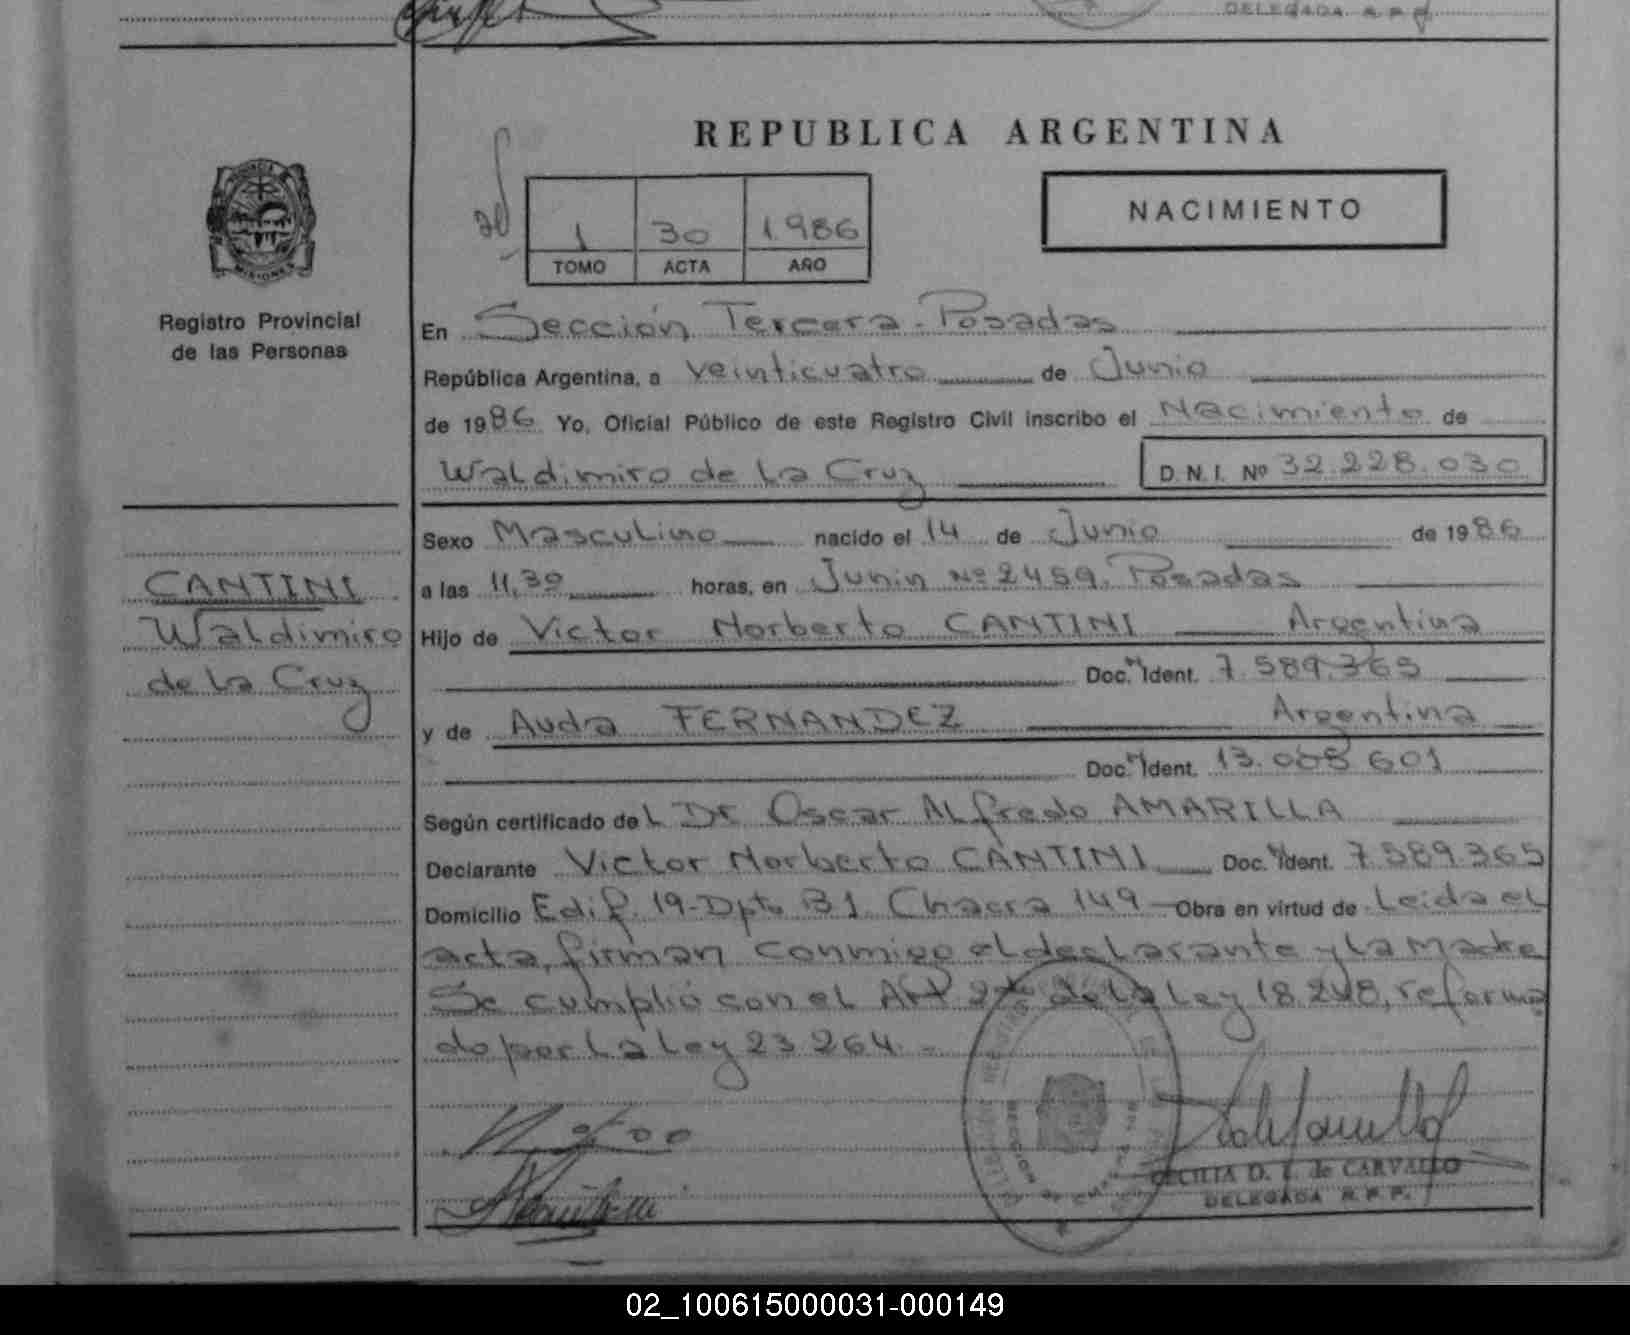 DELEGADA R.P.P.
REPUBLICA ARGENTINA
1 30 1.986
TOMO ACTA AÑO
NACIMIENTO
MISIONES
Registro Provincial
de las Personas
En Sección Tercera - Posadas
República Argentina, a veinticuatro de Junio
de 1986 Yo, Oficial Público de este Registro Civil inscribo el Nacimiento de
Waldimiro de La Cruz D.N.I. Nº 32.228.030
Sexo Masculino nacido el 14 de Junio de 1986
a las 11,30 horas, en Junin Nº 2459. Posadas
CANTINI
Waldimiro
de La Cruz
Hijo de Victor Norberto CANTINI Argentina
Doc. Ident. 7.589.365
y de Auda FERNANDEZ Argentina
Doc. Ident. 13.005 601
Según certificado del Dr Oscar ALfredo AMARILLA
Declarante Victor Norberto CANTINI Doc. Ident. 7.589.365
Domicilio Edif. 19-Dpto B1 Chacra 149 Obra en virtud de Leida el
acta, firman conmigo el declarante y La Madre
Se cumplió con el Art 2º de la Ley 18.248, reforma
do por La Ley 23 264. -
CECILIA D. L. de CARVALLO
DELEGADA R.P.P.
02_100615000031-000149